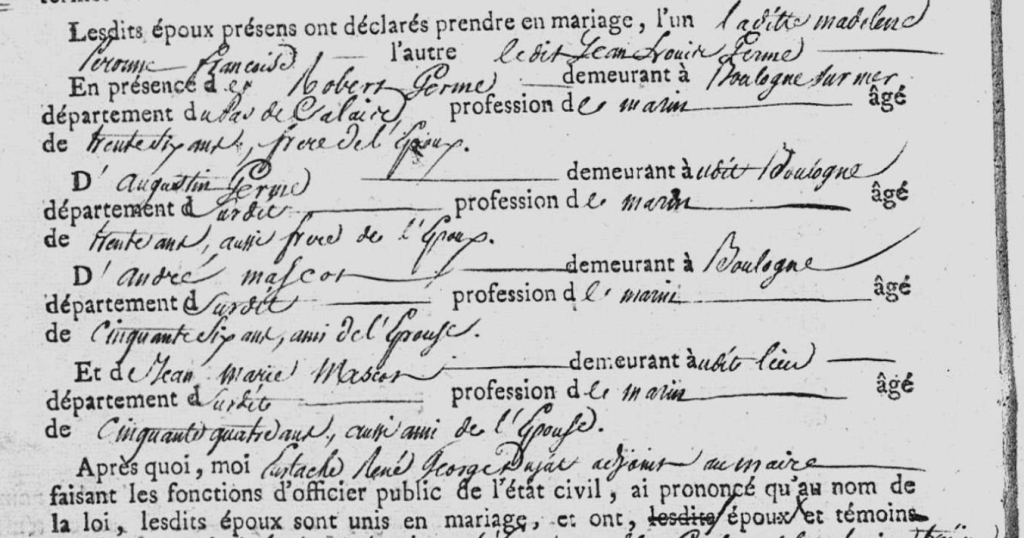 Lesdits époux présens ont déclarés prendre en mariage, l'un ladite madelene
Peronne françoise l'autre ledit Jean Louis Germe
En présence de Robert Germe demeurant à Boulogne sur mer
département du Pas de Calais profession de marin âgé
de trente six ans, frere de l'Epoux.
D' augustin Germe demeurant à udit Boulogne
département d Surdit profession de marin âgé
de trente ans, aussi frere de l'Epoux.
D' andré mascot demeurant à Boulogne
département d Surdit profession de marin âgé
de Cinquante six ans, ami de l'Epouse.
Et de Jean marie Mascot demeurant à udit lieu
département d Surdit profession de marin âgé
de Cinquante quatre ans, aussi ami de l'Epouse.
Après quoi, moi Eustache René George adjoint au maire
faisant les fonctions d'officier public de l'état civil, ai prononcé qu'au nom de
la loi, lesdits époux sont unis en mariage, et ont, lesdits époux et témoins